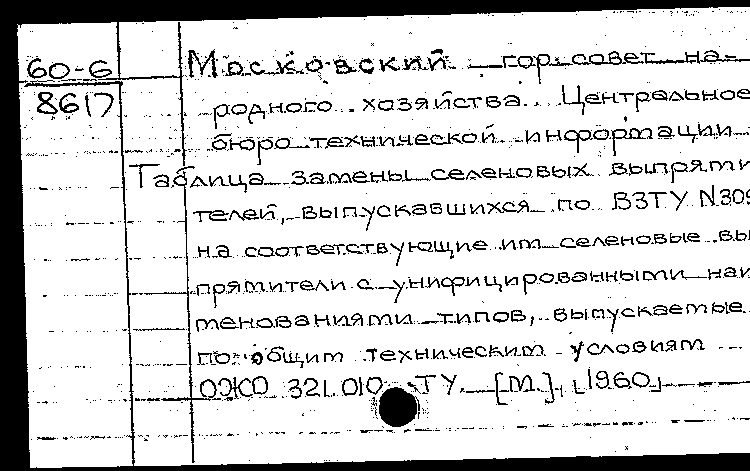 60-6
8617
Московский гор. совет на-
родного хозяйства. Центральное
бюро технической информации
Таблица замены селеновых выпрями
телей, выпускавшихся по ВЗТУ N309
на соответствующие им селеновые вы
прямители с унифицированными наи
менованиями типов, выпускаемые
по общим техническим условиям
ОЖО 321.010 ТУ. [М.], [1960]